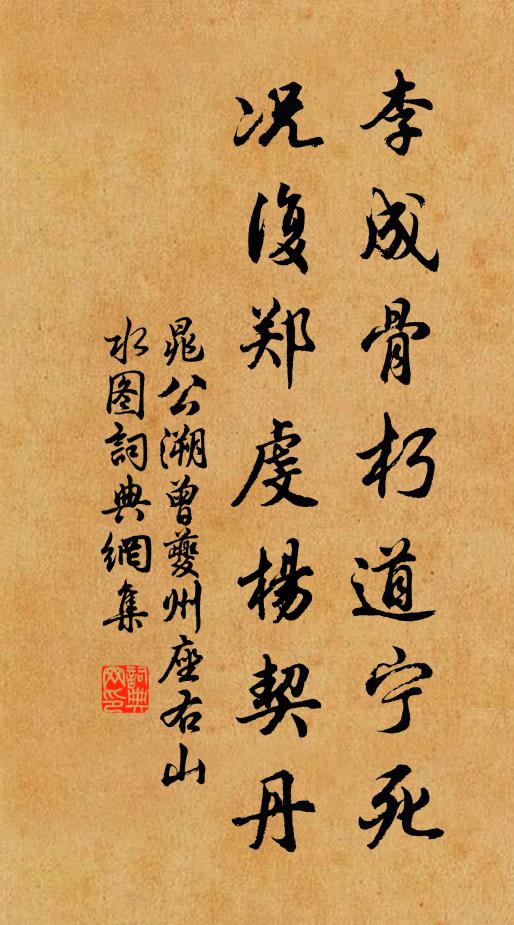 李成骨朽道宁死
况復郑虔楊契丹
晁公溯曾夔州座右山
水图詞典網集
詞典网印